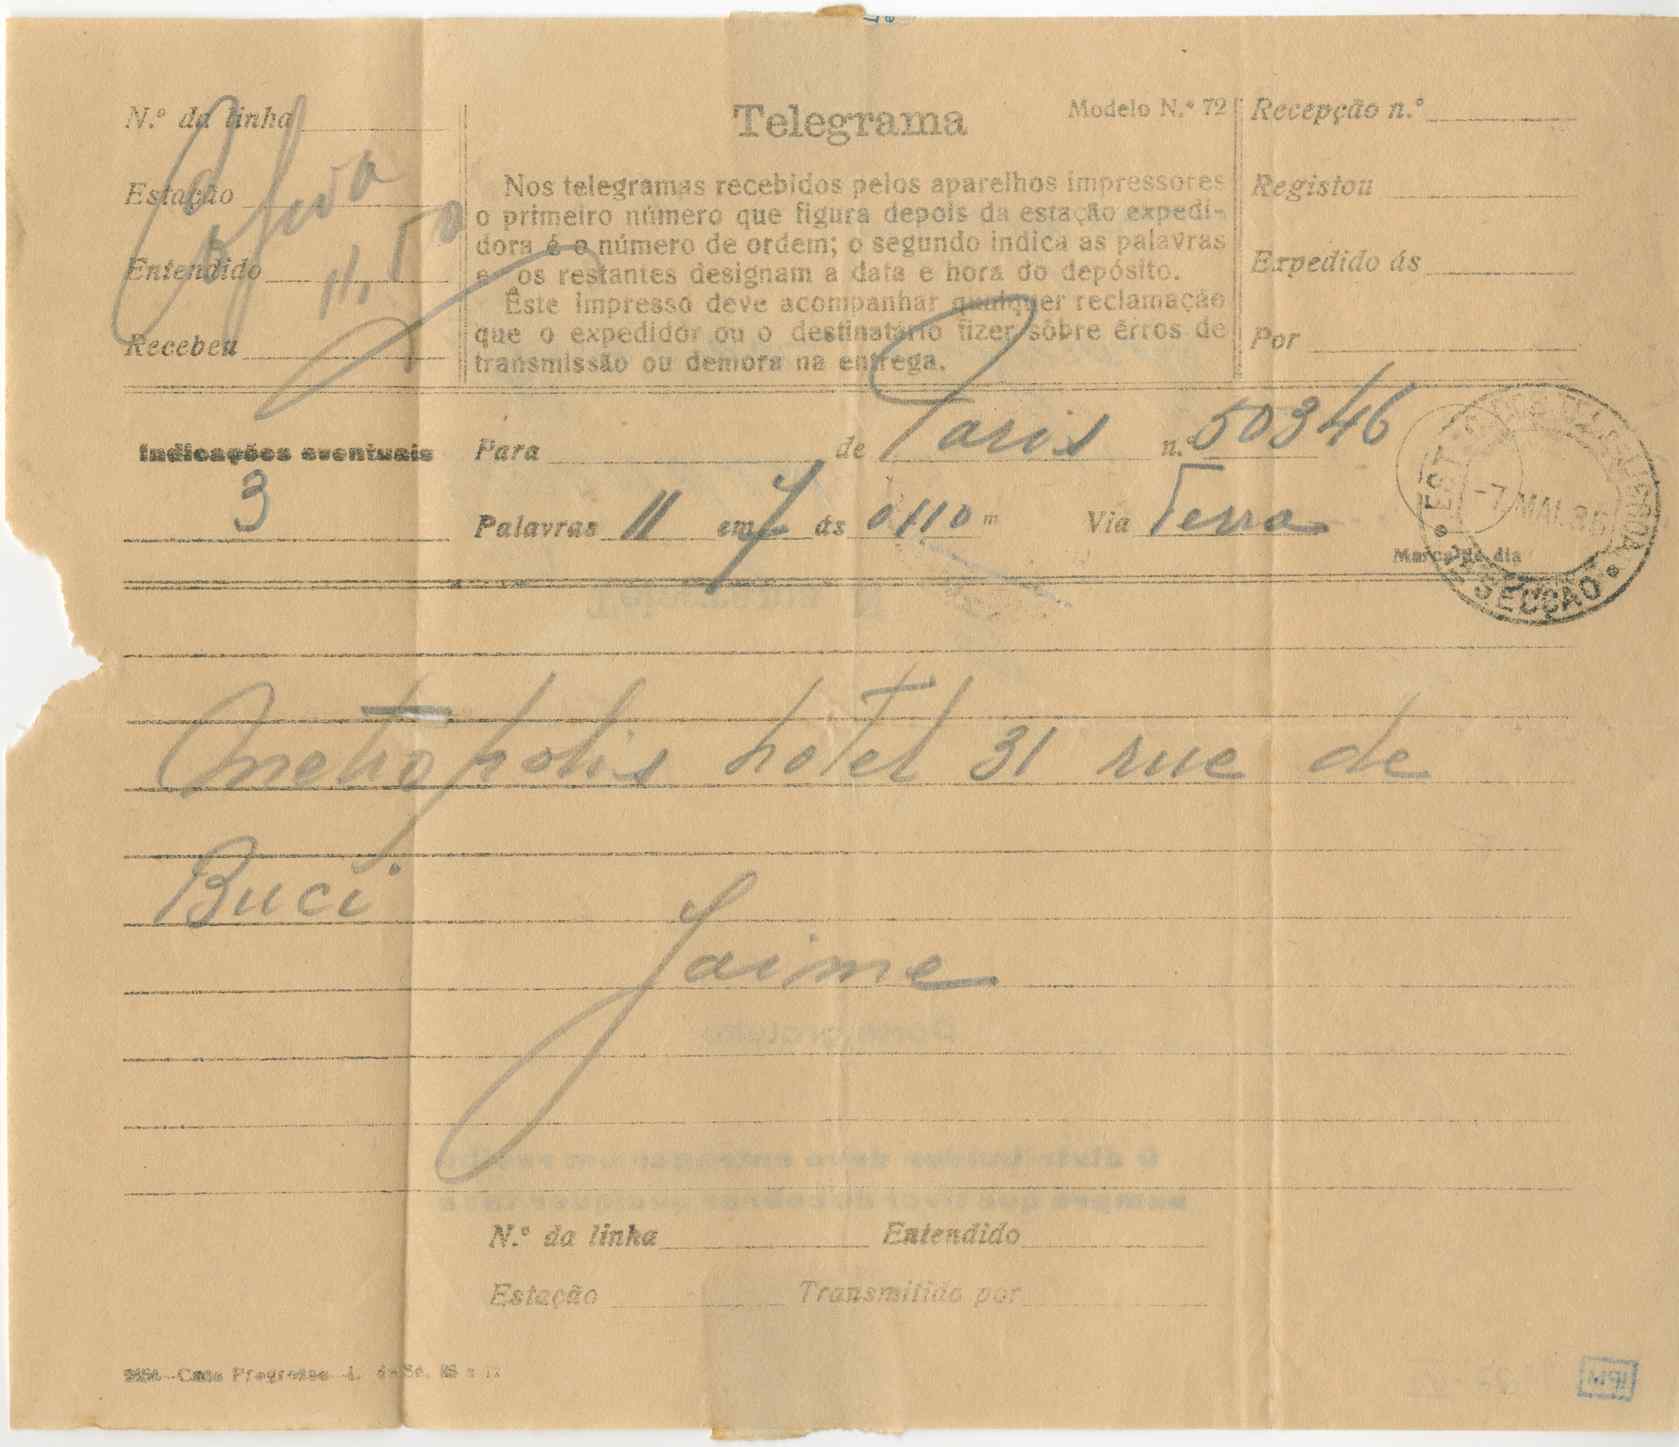 Telegrama
Modelo N.º 72
N.º da linha
Estação
Entendido
11,50
Recebeu
Nos telegramas recebidos pelos aparelhos impressores
o primeiro número que figura depois da estação expedi-
dora é o número de ordem; o segundo indica as palavras
e os restantes designam a data e hora do depósito.
Êste impresso deve acompanhar qualquer reclamação
que o expedidor ou o destinatário fizer sôbre êrros de
transmissão ou demora na entrega.
Recepção n.º
Registou
Expedido ás
Por
Indicações eventuais
3
Para de Paris n.º 50346
Palavras 11 em 7 ás 0h10 m Via Terra
Marca do dia
-7 MAI.
SECÇÃO
Metropolis hotel 31 rue de
Buci
Jaime
N.º da linha Entendido
Estação Transmitido por